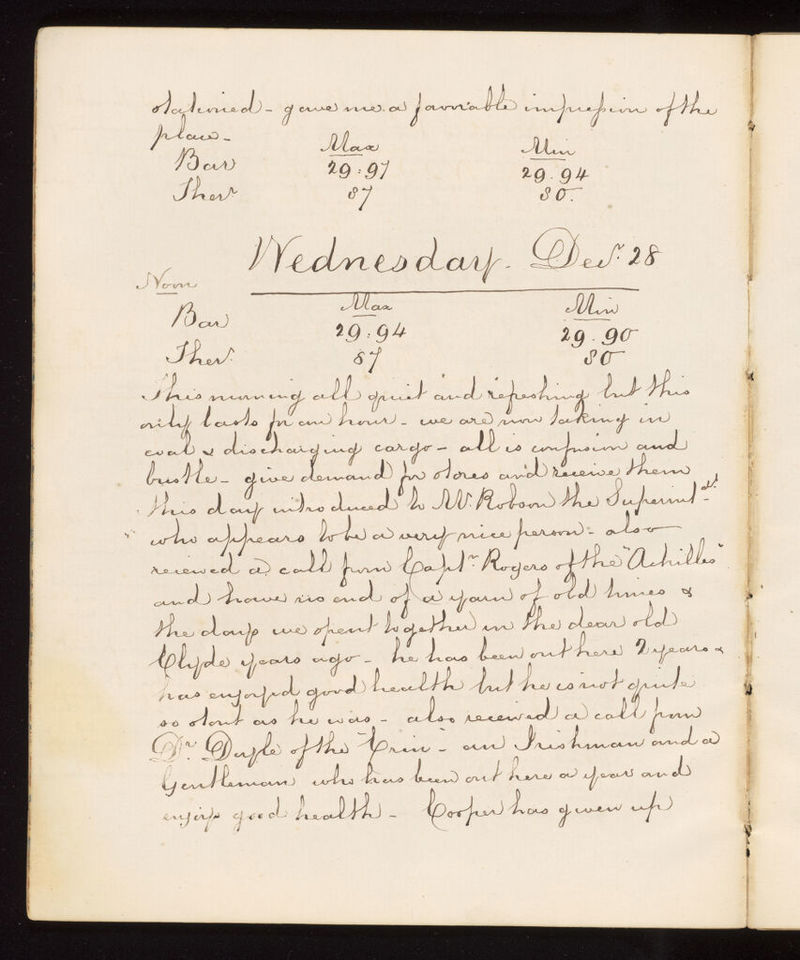 stationed - gave me a favorable impression of the
place -
Max Min
Bar 29.97 29.94
Ther 87 80.
Wednesday. Decr. 28
Noon
Max Min
Bar 29.94 29.90
Ther. 87 80
This morning all quiet and refreshing but this
only lasts for an hour - we are now taking in
coal & discharging cargo - all is confusion and
bustle - give demand for stores and receive them
this day introduced to Mr. Robson the Superintdt. -
who appears to be a very nice person - also
received a call from Captn. Rogers of the "Achilles"
and have no end of a yarn of old times &
the days we spent together in the dear old
Clyde years ago - he has been out here 2 years &
has enjoyed good health but he is not quite
so stout as he was - also received a call from
Dr. Doyle of the "Erin" - an Irishman and a
Gentleman who has been out here a year and
enjoys good health - Cooper has given up